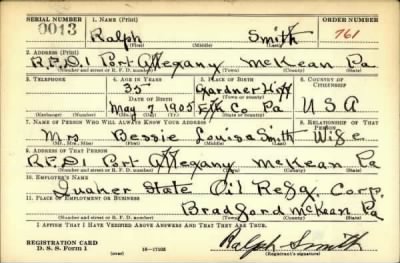 SERIAL NUMBER 1. NAME (Print) ORDER NUMBER
0013 Ralph Smith 761
(First) (Middle) (Last)
2. ADDRESS (Print)
R.F.D.1 Port Allegany McKean Pa
(Number and street or R. F. D. number) (Town) (County) (State)
3. TELEPHONE 4. AGE IN YEARS 5. PLACE OF BIRTH 6. COUNTRY OF CITIZENSHIP
35 Gardner Hoff
DATE OF BIRTH (Town or county)
May 7 1905 Elk Co. Pa USA
(Exchange) (Number) (Mo.) (Day) (Yr.) (State or country)
7. NAME OF PERSON WHO WILL ALWAYS KNOW YOUR ADDRESS 8. RELATIONSHIP OF THAT PERSON
Mrs Bessie Louisa Smith Wife
(Mr., Mrs., Miss) (First) (Middle) (Last)
9. ADDRESS OF THAT PERSON
R.F.D1 Port Allegany McKean Pa
(Number and street or R. F. D. number) (Town) (County) (State)
10. EMPLOYER'S NAME
Quaker State Oil Refg. Corp.
11. PLACE OF EMPLOYMENT OR BUSINESS
Bradford McKean Pa
(Number and street or R. F. D. number) (Town) (County) (State)
I AFFIRM THAT I HAVE VERIFIED ABOVE ANSWERS AND THAT THEY ARE TRUE.
REGISTRATION CARD
D. S. S. Form 1 (over) 16—17105 Ralph Smith
(Registrant's signature)